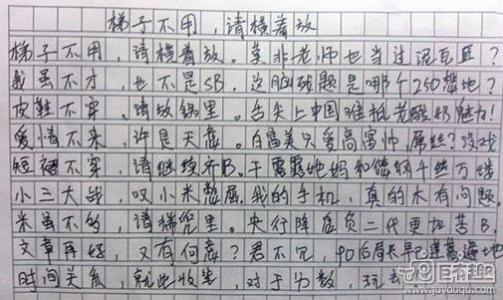 梯子不用,请横着放
梯子不用,请横着放。莫非老师也当过泥瓦匠?
我虽不才,也不是SB,这脑残题是哪个250整地?
皮鞋不穿,请放锅里。舌尖上中国难抵老酸奶魅力!
爱情不来,许是天意。白富美只爱高富帅,屌丝?没戏
短裙不穿,请继续齐B。干露露她妈和
小三大战,叹小米憋屈,我的手机,真的木有问题
米虽不多,请梯兜里。央行降息负二代更加苦B
文章再好,又有何意?君不见,90后周某早已遍地
时间关系,就此收笔,对于分数,玩
巨有社区
www.juyouqu.com